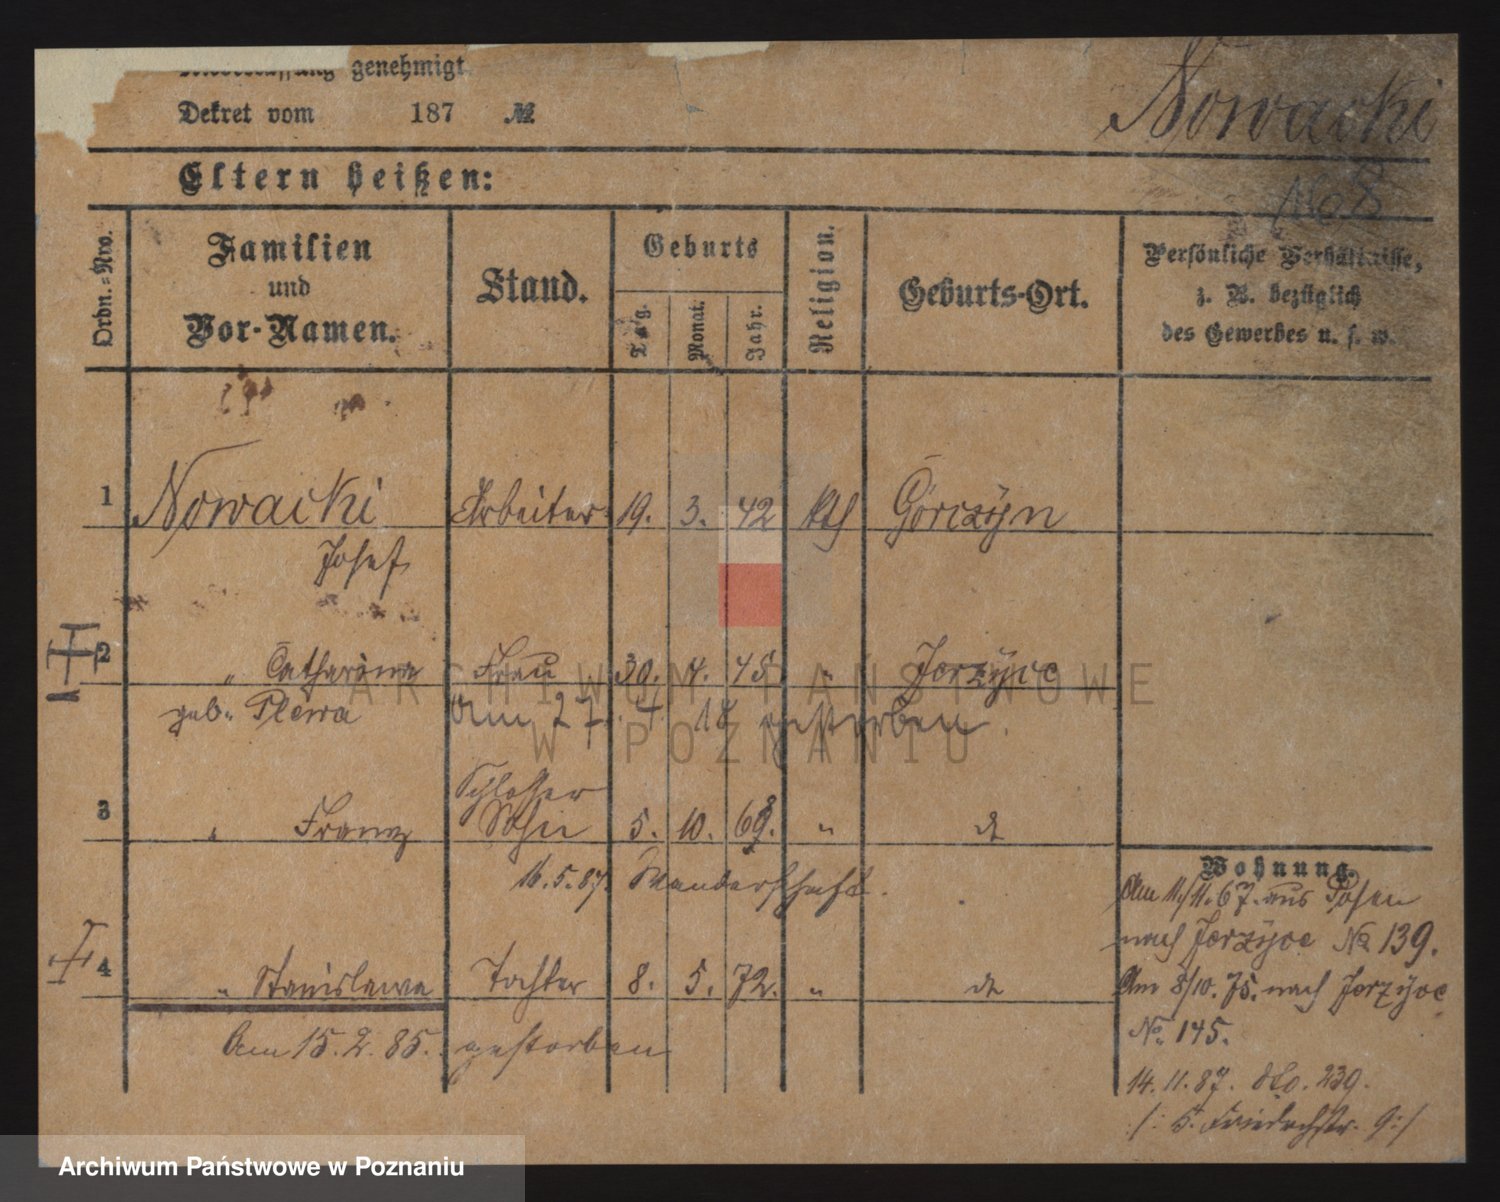 genehmigt
Dekret vom 187 №
Nowacki
Eltern heißen:
No 8
Ordn.=Nro.
Familien
und
Vor-Namen.
Stand.
Geburts
Tag.
Monat.
Jahr.
Religion.
Geburts-Ort.
Persönliche Verhältnisse,
z. B. bezüglich
des Gewerbes u. s. w.
1 Nowacki Arbeiter 19. 3. 42 kth Górczÿn
Josef
2 " Catharina Frau 30. 4. 45 " Jerzÿce
geb. Plewa Am 27. 4 18 gestorben.
Schlosser
3 " Franz Sohn 5. 10. 69. " dt
16.5.87. Wanderschaft.
Wohnung.
Am 11/11.67. aus Posen
nach Jerzÿce No 139.
4 " Stanislawa Tochter 8. 5. 72. " dt
Am 8/10. 75. nach Jerzÿce
No. 145.
Am 15. 2. 85. gestorben
14. 11. 87. dto. 239.
/: 5. Friedrchstr. 9:/
ARCHIWUM PAŃSTWOWE
W POZNANIU
Archiwum Państwowe w Poznaniu